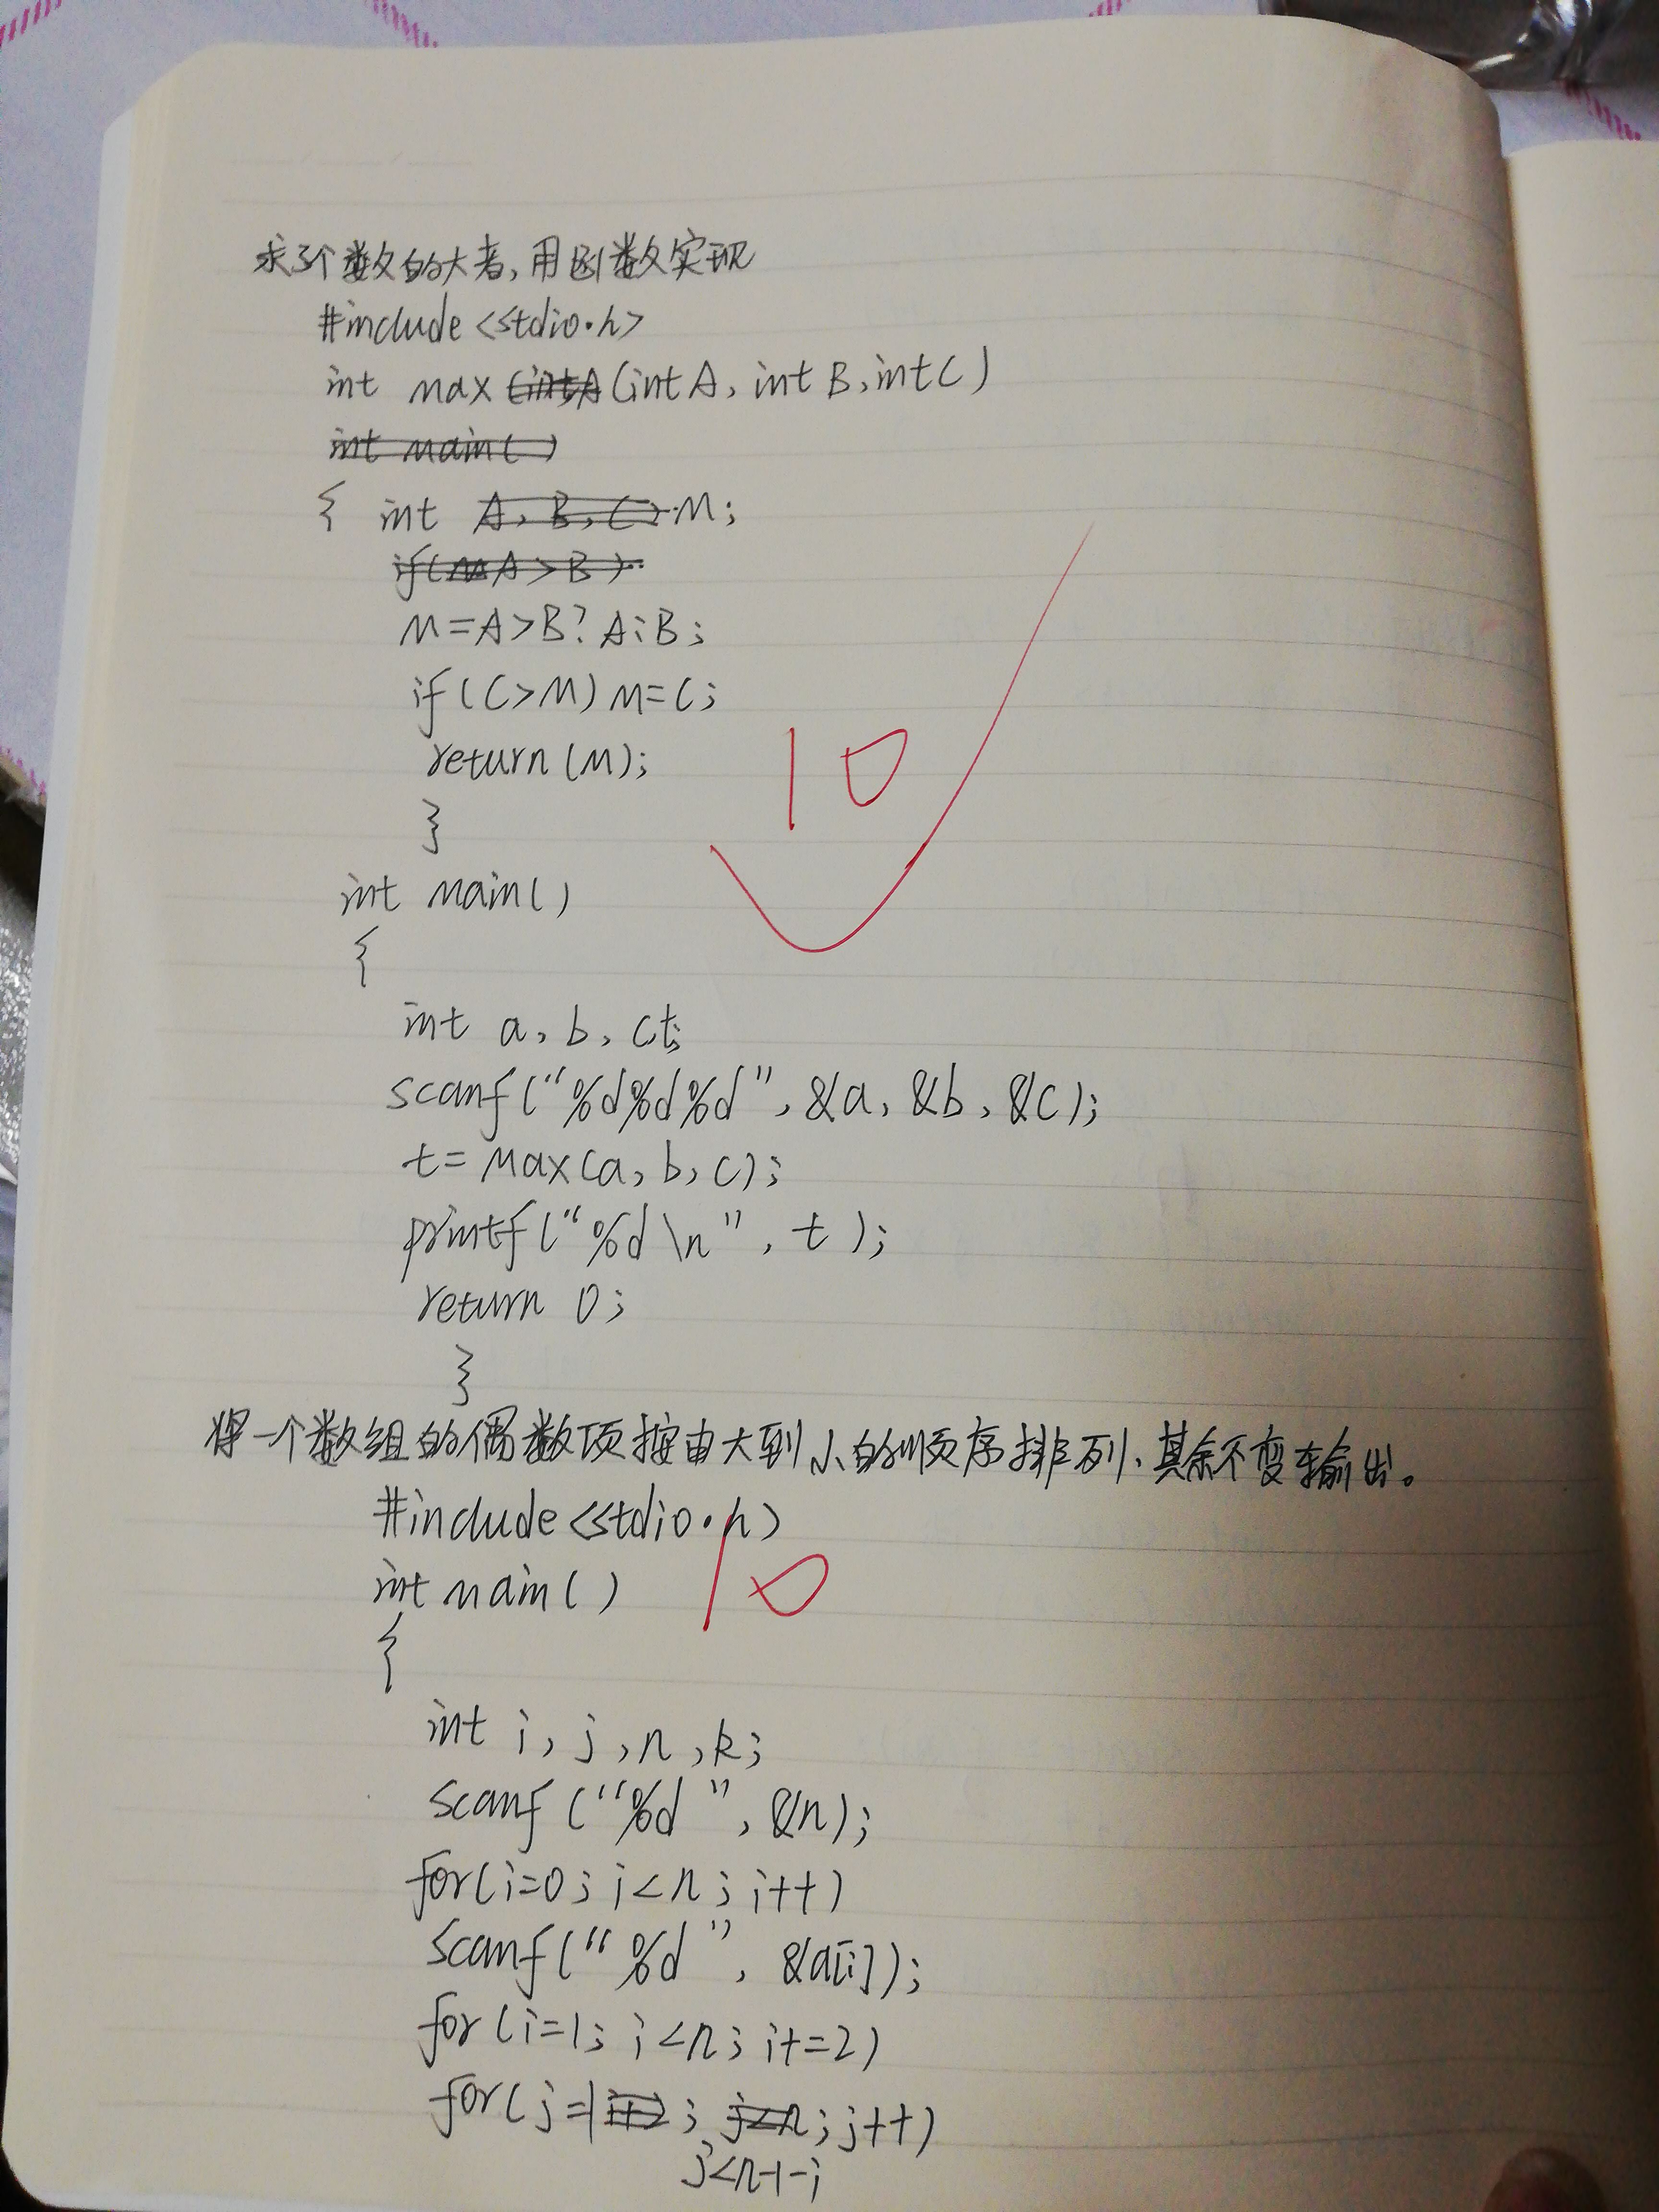 求3个数的大者,用函数实现
#include<stdio.h>
int max (int A, int B, int C)
{ int M;
M=A>B? A:B;
if(C>M) M=C;
return(M);
10
}
int main()
{
int a, b, c t;
scanf("%d%d%d", &a, &b, &c);
t= Max(a, b, c);
printf("%d\n", t);
return 0;
}
将一个数组的偶数项按由大到小的顺序排列、其余不变输出。
#include<stdio.h>
int main()
10
{
int i, j, n, k;
scanf("%d", &n);
for(i=0; i<n; i++)
scanf("%d", &a[i]);
for(i=1; i<n; i+=2)
for(j=1; j++)
j<n-1-i